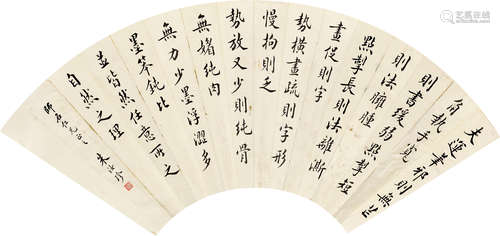 夫運筆邪則無芒
角執手寬
則書緩弱點掣短
則法臃腫
點掣長則法離澌
畫促則字
勢橫畫疏則字形
慢拘則乏
勢放又少則純骨
無媚純肉
無力少墨浮澀多
墨笨鈍比
並皆然任意所之
自然之理
仁兄正之 朱汝珍